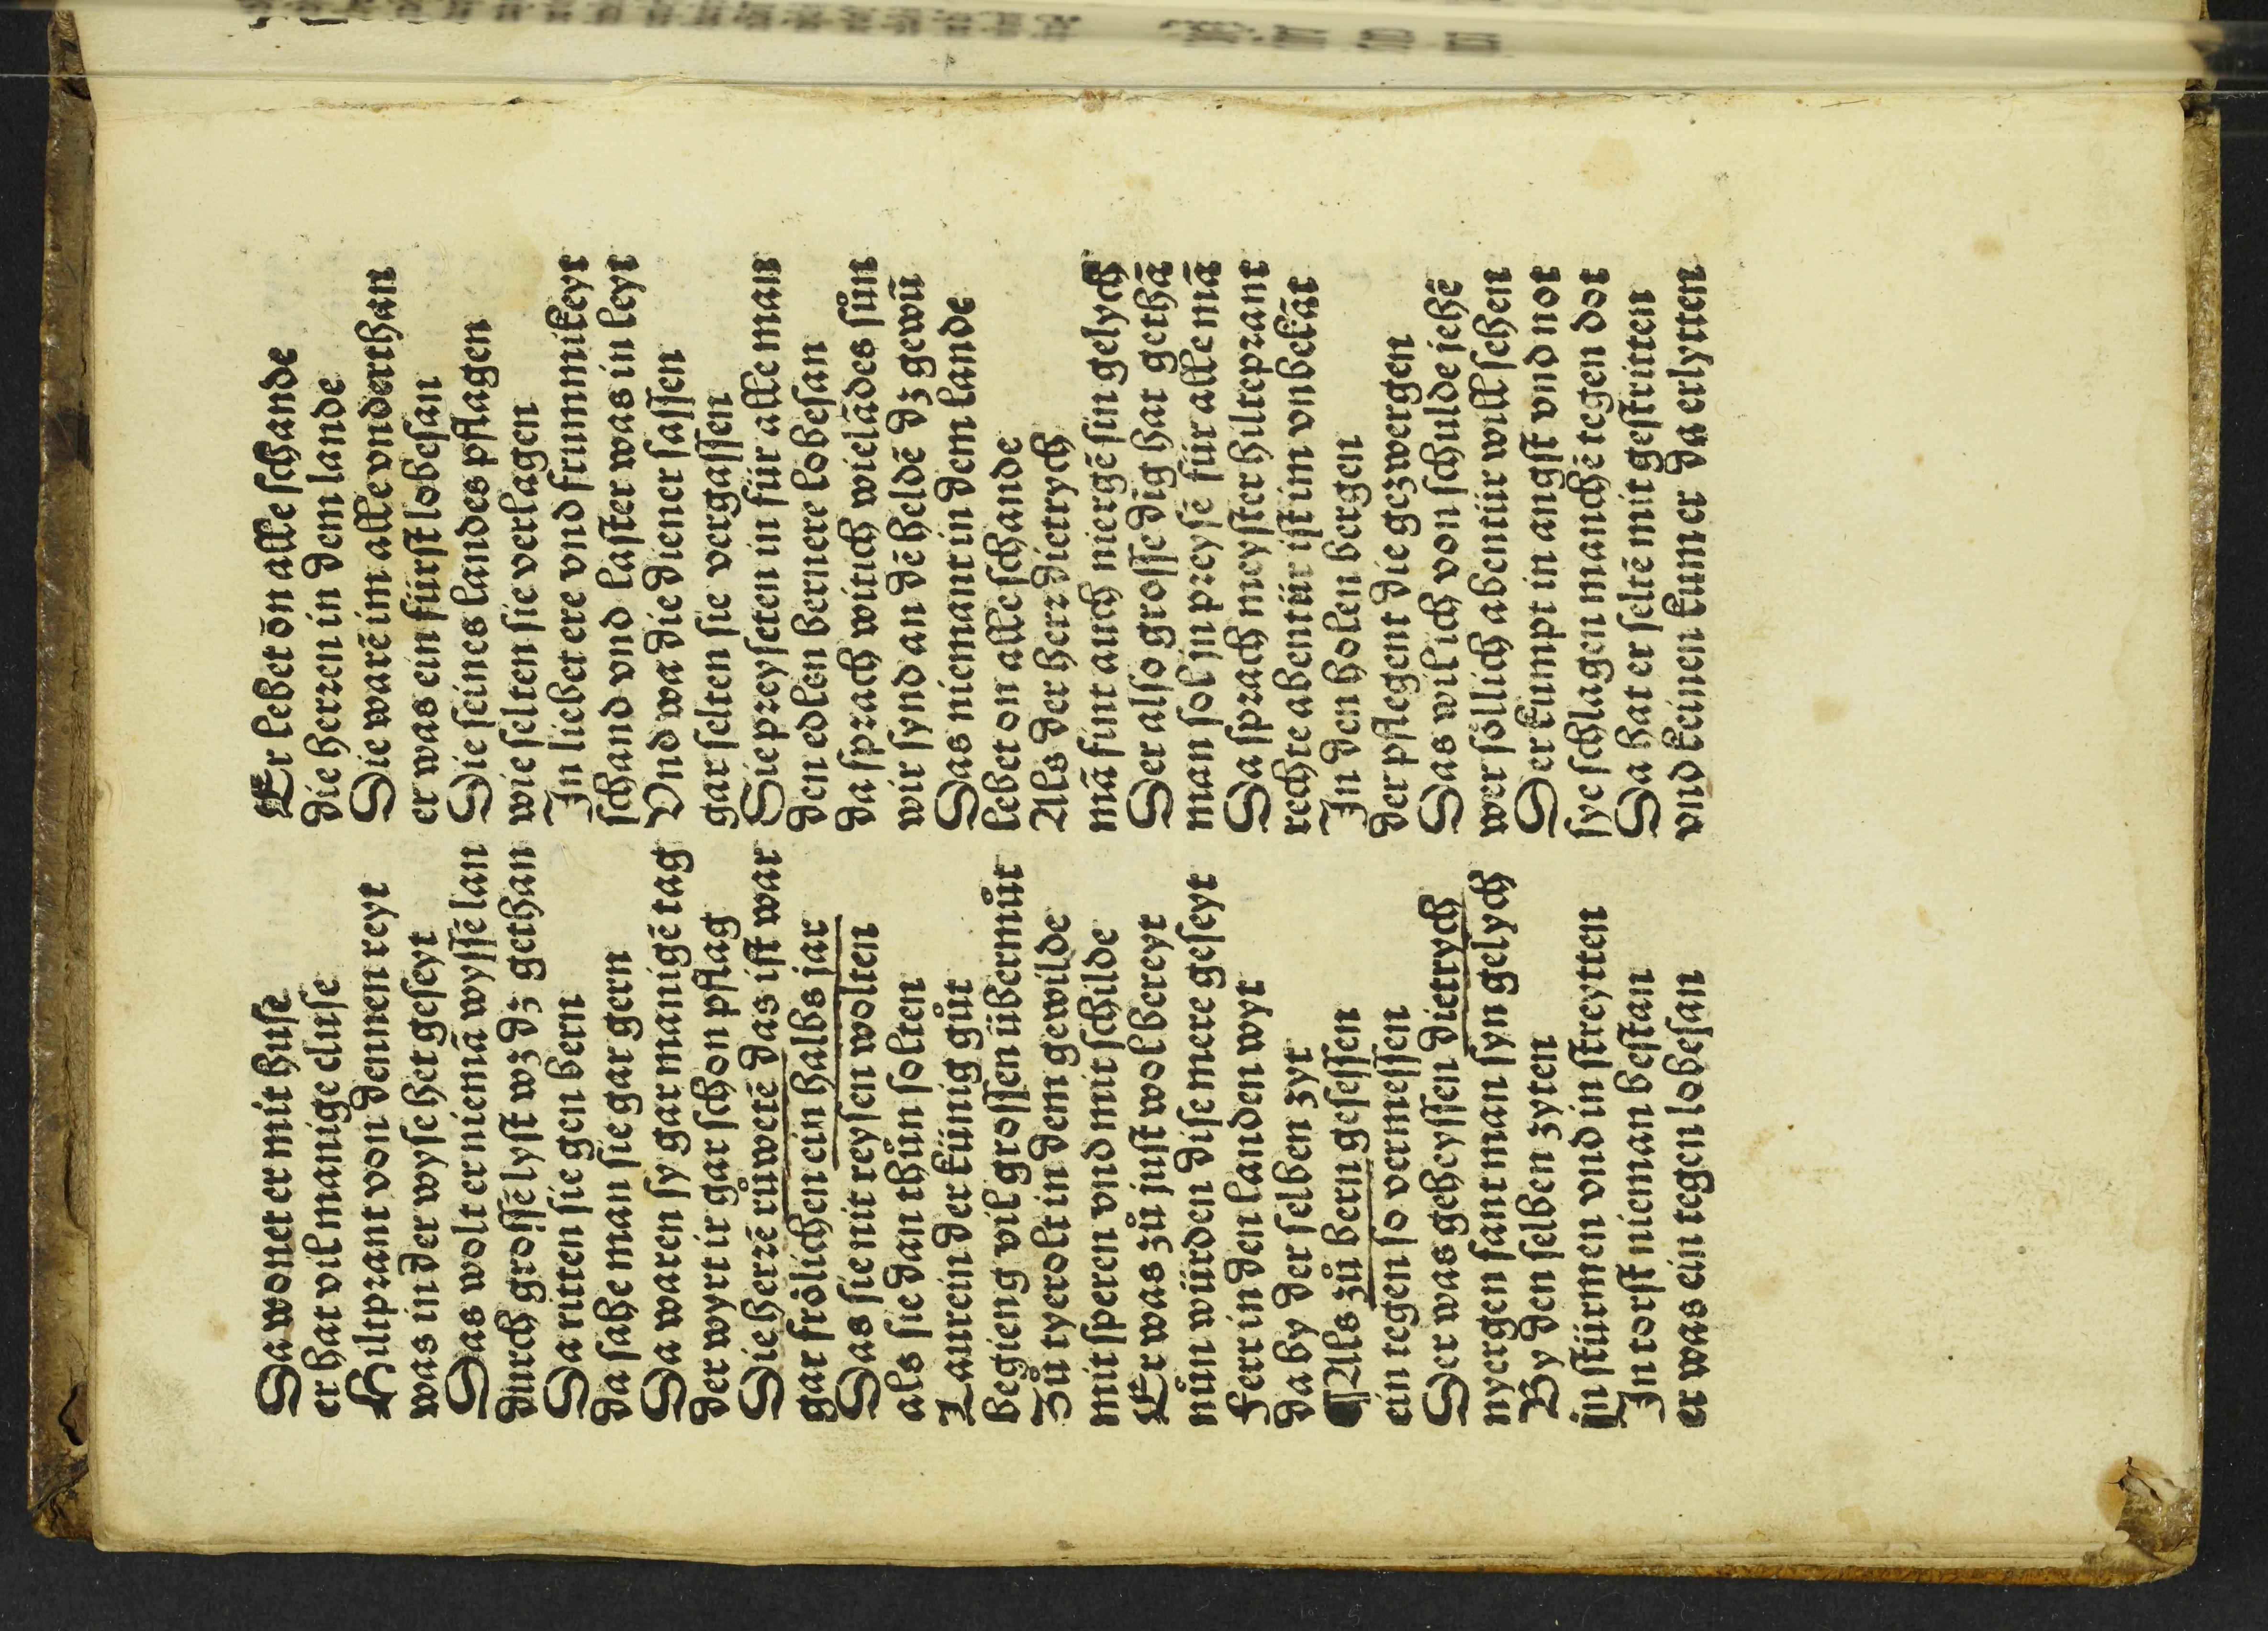 Da wonet er mit huſe
er hat vil manige cluſe
Hiltprant von dennen reyt
was in der wyſe her geſeyt
Das wolt er niemā wyſſē lan
durch groſſē lyſt wz dz gethan
Da ritten ſie gen bern
da ſahe man ſie gar gern
Da waren ſy gar manigē tag
der wyrt ir gar ſchon pflag
Die herzē růwetē das iſt war
gar frölichen ein halbs jar
Das ſie nit reyſen wolten
als ſie dan thůn ſolten
Laurein der künig gůt
begieng vil groſſen übermůt
Zů tyerolt in dem gewilde
mit ſperen vnd mit ſchilde
Er was zů juſt wol bereyt
nůn würden diſe mere geſeyt
Ferr in den landen wyt
da by der ſelben zyt
¶Als zů bern geſeſſen
ein tegen ſo vermeſſen
Der was geheyſſen dietrych
nyergen fant man ſyn gelych
By den ſelben zyten
in ſtürmen vnd in ſtreytten
In torſt nieman beſtan
er was ein tegen lobeſan
Er lebet ōn alle ſchande
die herzen in dem lande
Die warē im alle vnderthan
er was ein fürſt lobeſan
Die ſeines landes pflagen
wie ſelten ſie verlagen
In liebet ere vnd frummikeyt
ſchand vnd laſter was in leyt
Vnd wa die diener ſaſſen
gar ſelten ſie vergaſſen
Sie preyſeten in für alle man
den edlen bernere lobeſan
da ſprach witich wielādes ſůn
wir ſynd an dē heldē dz gewū
Das niemant in dem lande
lebet on alle ſchande
Als der herz dietrych
mā fint auch niergē ſin gelych
Der alſo groſſe dīg hat gethā
man ſol jn preyſē für alle mā
Da ſprach meyſter hilteprant
rechte abentür iſt im vnbekāt
In den holen bergen
der pflegent die gezwergen
Das wil ich von ſchulde jehē
wer ſöllich abentür will ſehen
Der kumpt in angſt vnd not
ſye ſchlagen manchē tegen dot
Da hat er ſeltē mit geſtritten
vnd keinen kumer da erlytten